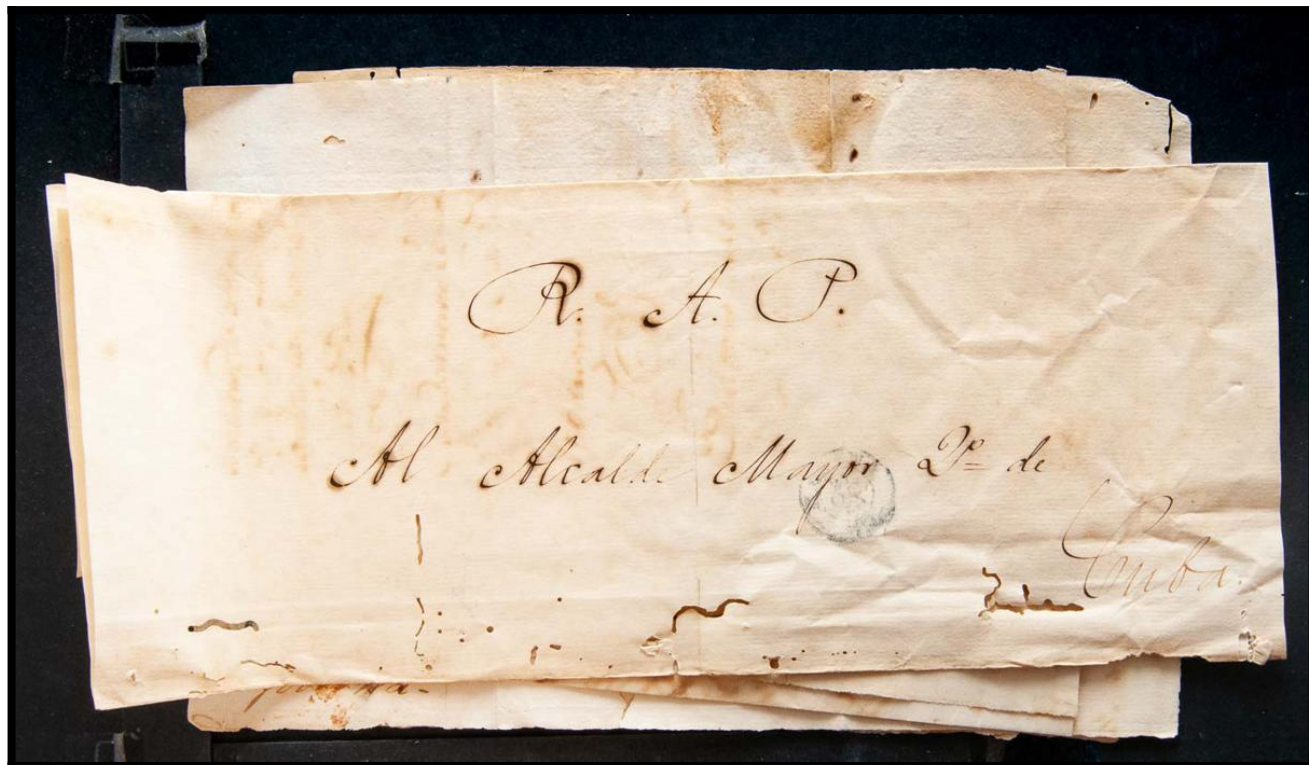 R. A. P.
Al Alcalde Mayor 2º de
Cuba.